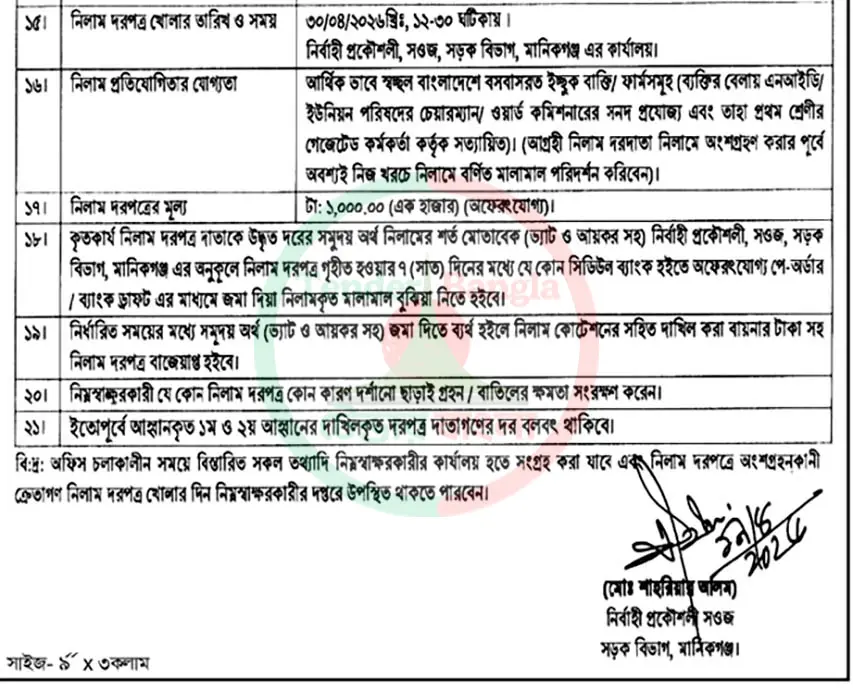 ১৫। নিলাম দরপত্র খোলার তারিখ ও সময় ৩০/০৪/২০২৬খ্রিঃ, ১২-৩০ ঘটিকায়।
নির্বাহী প্রকৌশলী, সওজ, সড়ক বিভাগ, মানিকগঞ্জ এর কার্যালয়।
১৬। নিলাম প্রতিযোগিতার যোগ্যতা আর্থিক ভাবে স্বচ্ছল বাংলাদেশে বসবাসরত ইচ্ছুক ব্যক্তি/ ফার্মসমূহ (ব্যক্তির বেলায় এনআইডি/
ইউনিয়ন পরিষদের চেয়ারম্যান/ ওয়ার্ড কমিশনারের সনদ প্রযোজ্য এবং তাহা প্রথম শ্রেণীর
গেজেটেড কর্মকর্তা কর্তৃক সত্যায়িত)। (আগ্রহী নিলাম দরদাতা নিলামে অংশগ্রহণ করার পূর্বে
অবশ্যই নিজ খরচে নিলামে বর্ণিত মালামাল পরিদর্শন করিবেন)।
১৭। নিলাম দরপত্রের মূল্য টা: ১,০০০.০০ (এক হাজার) (অফেরৎযোগ্য)।
১৮। কৃতকার্য নিলাম দরপত্র দাতাকে উদ্ধৃত দরের সমুদয় অর্থ নিলামের শর্ত মোতাবেক (ভ্যাট ও আয়কর সহ) নির্বাহী প্রকৌশলী, সওজ, সড়ক
বিভাগ, মানিকগঞ্জ এর অনুকূলে নিলাম দরপত্র গৃহীত হওয়ার ৭ (সাত) দিনের মধ্যে যে কোন সিডিউল ব্যাংক হইতে অফেরৎযোগ্য পে-অর্ডার
/ ব্যাংক ড্রাফট এর মাধ্যমে জমা দিয়া নিলামকৃত মালামাল বুঝিয়া নিতে হইবে।
১৯। নির্ধারিত সময়ের মধ্যে সমুদয় অর্থ (ভ্যাট ও আয়কর সহ) জমা দিতে ব্যর্থ হইলে নিলাম কোটেশনের সহিত দাখিল করা বায়নার টাকা সহ
নিলাম দরপত্র বাজেয়াপ্ত হইবে।
২০। নিম্নস্বাক্ষরকারী যে কোন নিলাম দরপত্র কোন কারণ দর্শানো ছাড়াই গ্রহন / বাতিলের ক্ষমতা সংরক্ষণ করেন।
২১। ইতোপূর্বে আহ্বানকৃত ১ম ও ২য় আহ্বানের দাখিলকৃত দরপত্র দাতাগণের দর বলবৎ থাকিবে।
বি:দ্র: অফিস চলাকালীন সময়ে বিস্তারিত সকল তথ্যাদি নিম্নস্বাক্ষরকারীর কার্যালয় হতে সংগ্রহ করা যাবে এবং নিলাম দরপত্রে অংশগ্রহনকানী
ক্রেতাগণ নিলাম দরপত্র খোলার দিন নিম্নস্বাক্ষরকারীর দপ্তরে উপস্থিত থাকতে পারবেন।
(মোঃ শাহরিয়ার আলম)
নির্বাহী প্রকৌশলী সওজ
সড়ক বিভাগ, মানিকগঞ্জ।
সাইজ- ৯" X ৩কলাম